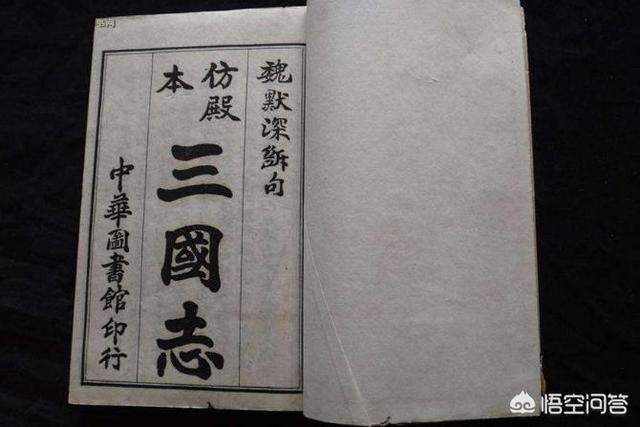 魏默深斷句
仿殿
本
三國志
中華圖書館印行
悟空问答